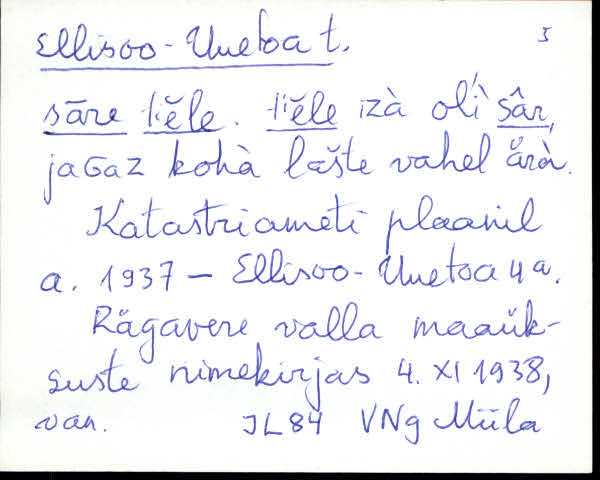 Ellisoo-Unetoa t. 5
sāre tiěle. tiěle izà oĺì sâr,
jaGaZ kohà lašte vahel ärà.
Katastriameti plaanil
a. 1937 – Ellisoo-Unetoa 4a.
Rägavere valla maaük-
suste nimekirjas 4. XI 1938,
van. JL84 VNg Miila